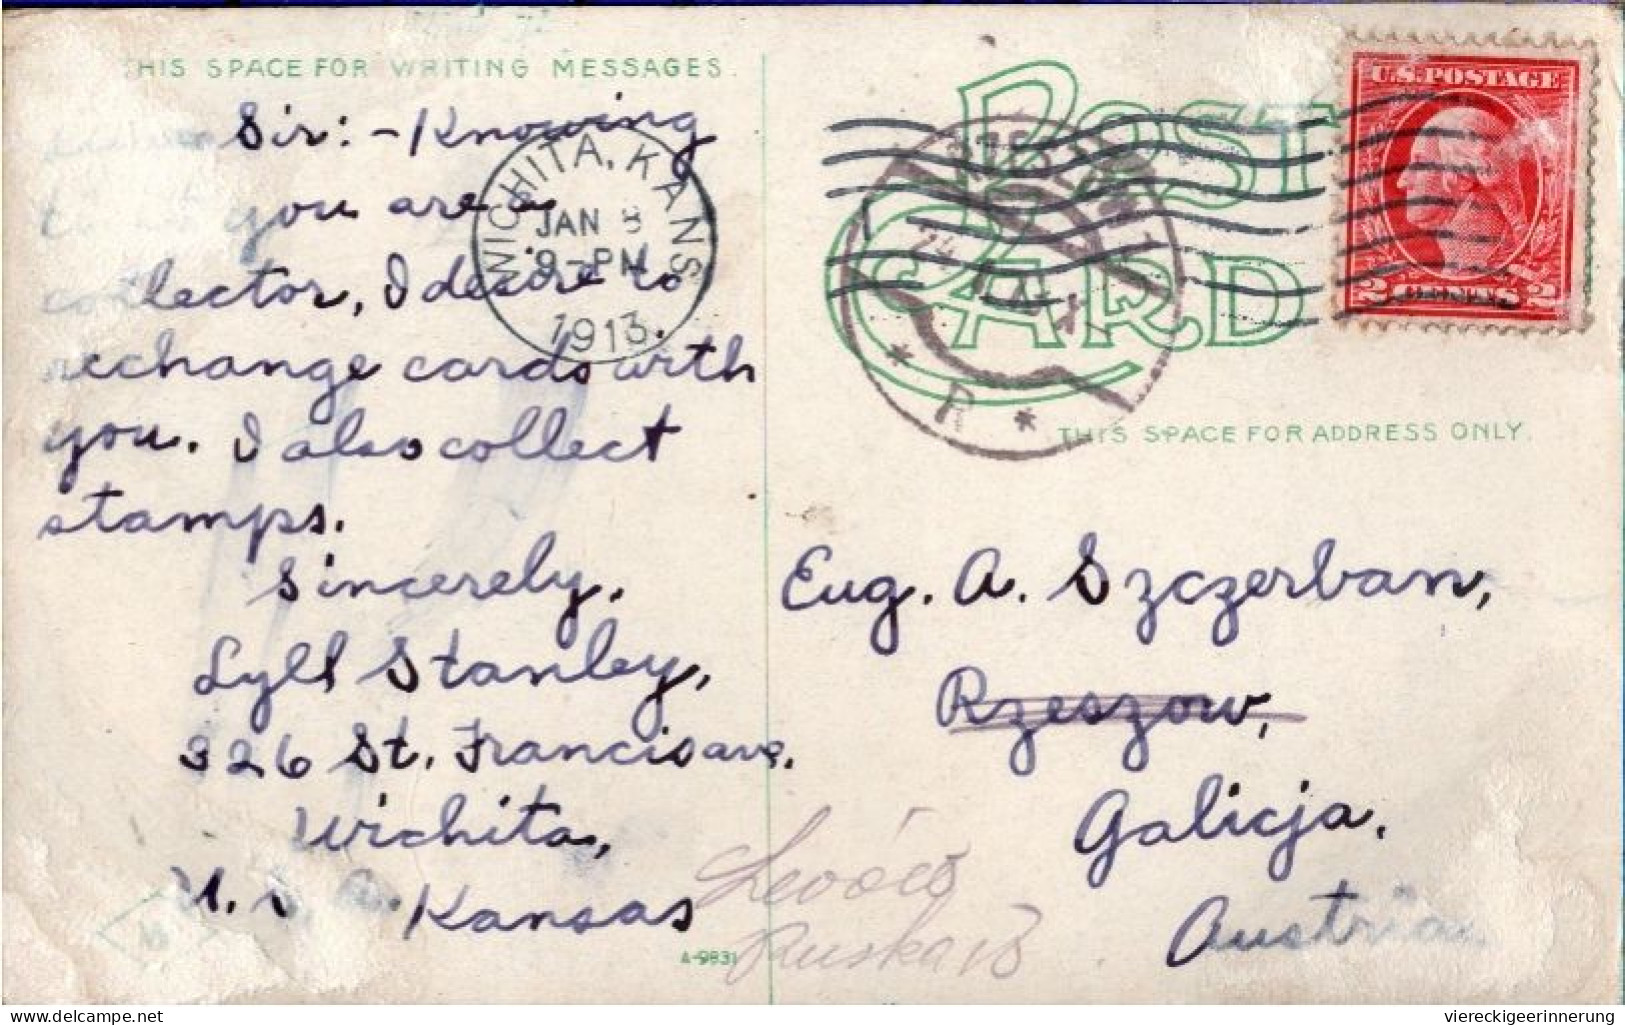 THIS SPACE FOR WRITING MESSAGES.
Sir:-Knowing
you are a
collector, I desire to
exchange cards with
you. I also collect
stamps.
Sincerely,
Lyll Stanley,
326 St. Francis ave.
Wichita,
U. S. A. Kansas
WICHITA, KANS.
JAN
9-PM
1913.
A-9831
POST CARD
U.S. POSTAGE
2 CENTS 2
* R *
THIS SPACE FOR ADDRESS ONLY.
Eug. A. Szczerban,
Rzeszow,
Galicja,
Austria
Ruska 13
viereckigeerinnerung